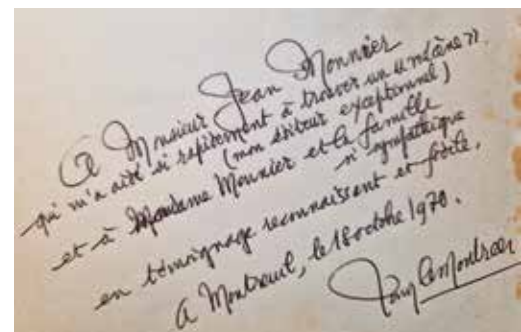 A Monsieur Jean Monnier
qui m'a aidé si rapidement à trouver un « mécène ».
(mon éditeur exceptionnel)
et à Madame Monnier et la famille
si sympathique
en témoignage reconnaissant et fidèle,
A Montreuil, le 18 octobre 1970.